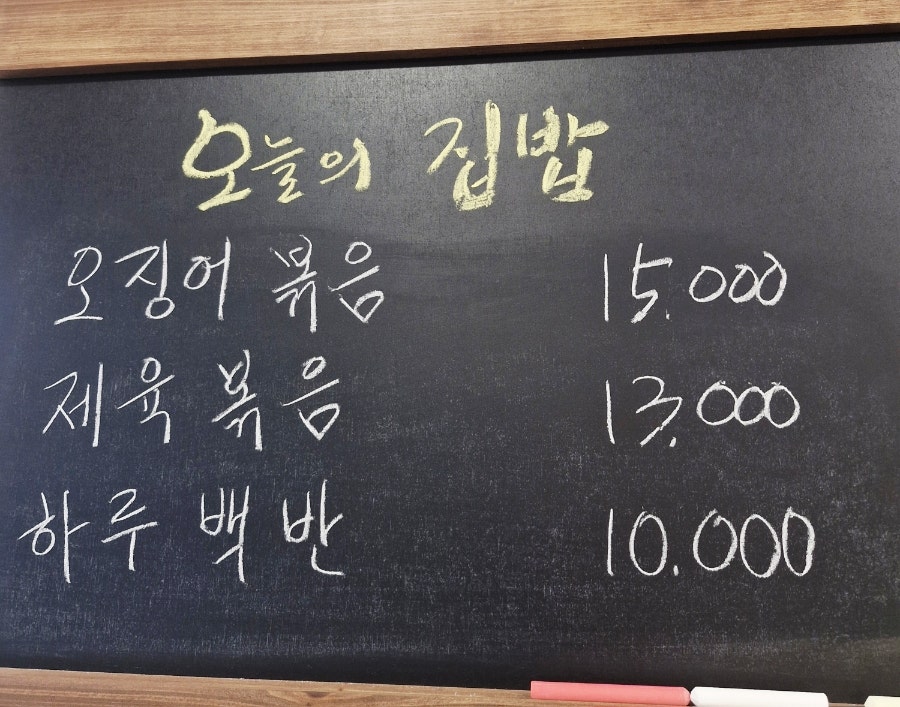 오늘의 집밥
오징어 볶음 15.000
제육 볶음 13.000
하루 백반 10.000